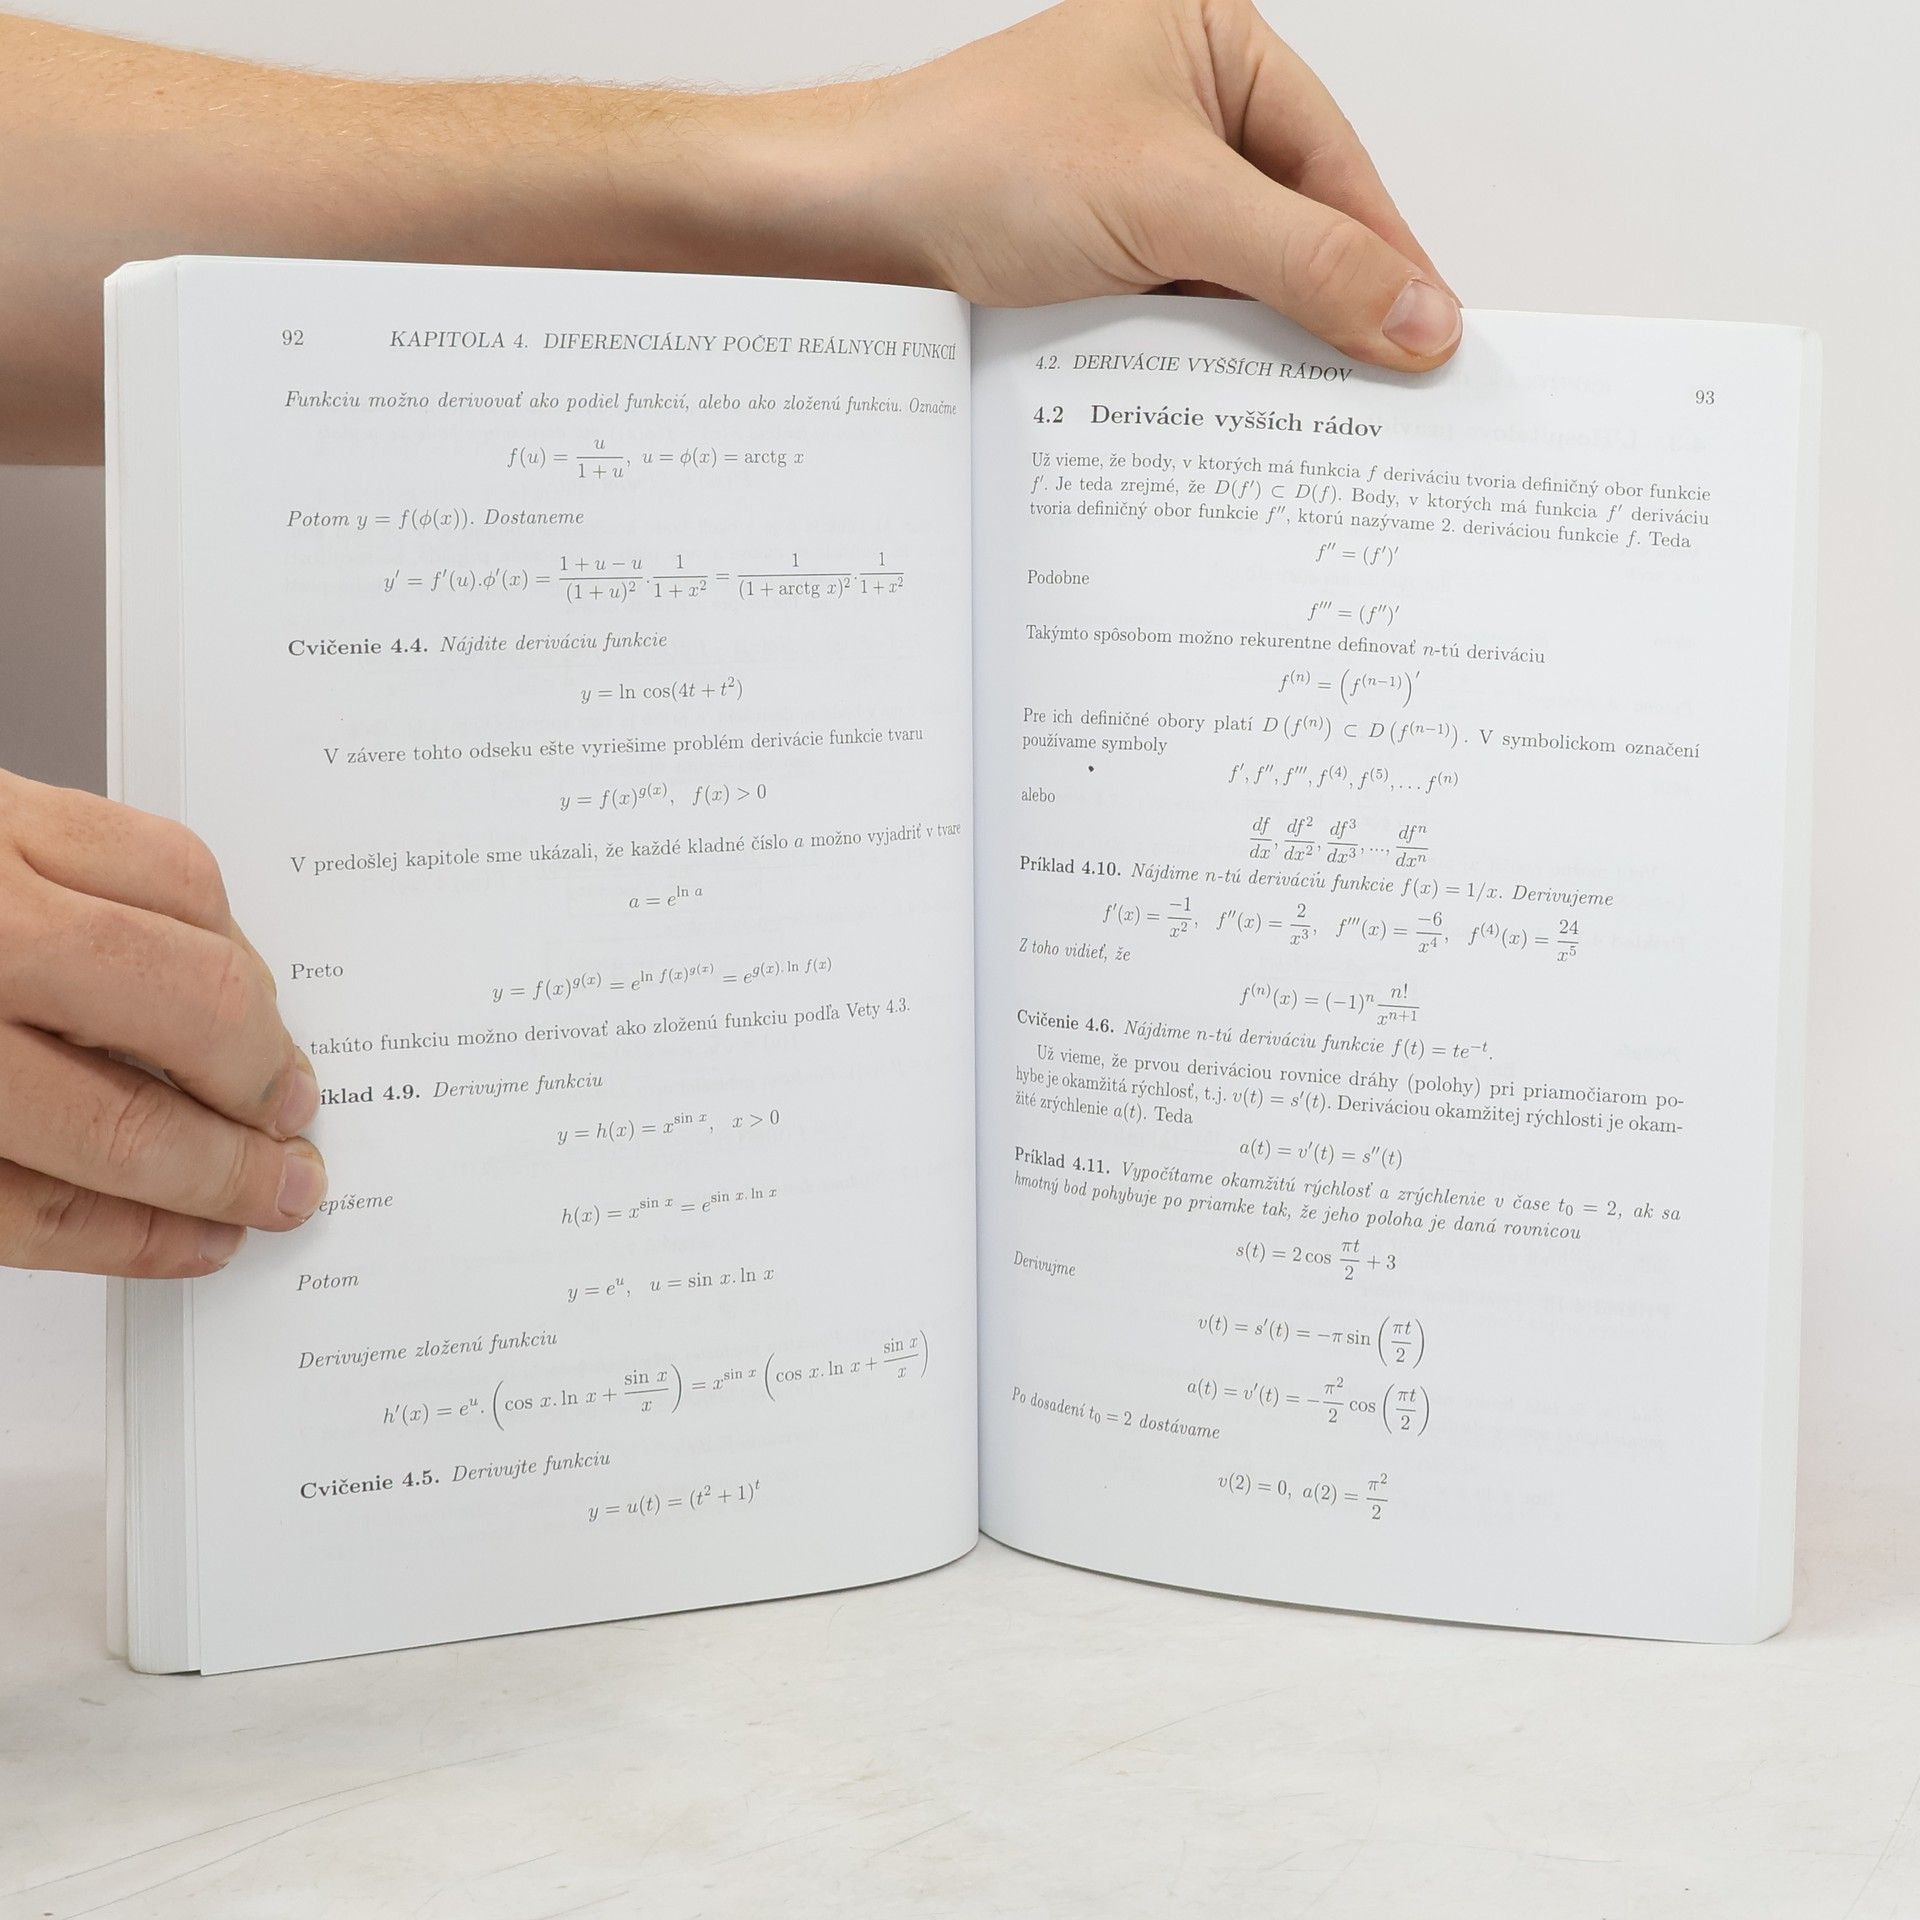 92 KAPITOLA 4. DIFERENCIÁLNY POČET REÁLNYCH FUNKCIÍ
Funkciu možno derivovať ako podiel funkcií, alebo ako zloženú funkciu. Označme
f(u) = u/(1 + u), u = ϕ(x) = arctg x
Potom y = f(ϕ(x)). Dostaneme
y′ = f′(u).ϕ′(x) = (1 + u − u)/(1 + u)² · 1/(1 + x²) = 1/(1 + arctg x)² · 1/(1 + x²)
Cvičenie 4.4. Nájdite deriváciu funkcie
y = ln cos(4t + t²)
V závere tohto odseku ešte vyriešime problém derivácie funkcie tvaru
y = f(x)^g(x), f(x) > 0
V predošlej kapitole sme ukázali, že každé kladné číslo a možno vyjadriť v tvare
a = e^(ln a)
Preto
y = f(x)^g(x) = e^(ln f(x)^g(x)) = e^(g(x). ln f(x))
takúto funkciu možno derivovať ako zloženú funkciu podľa Vety 4.3.
íklad 4.9. Derivujme funkciu
y = h(x) = x^(sin x), x > 0
epíšeme
h(x) = x^(sin x) = e^(sin x. ln x)
Potom
y = e^u, u = sin x. ln x
Derivujeme zloženú funkciu
h′(x) = e^u. (cos x. ln x + sin x/x) = x^(sin x) (cos x. ln x + sin x/x)
Cvičenie 4.5. Derivujte funkciu
y = u(t) = (t² + 1)^t
4.2. DERIVÁCIE VYŠŠÍCH RÁDOV 93
4.2 Derivácie vyšších rádov
Už vieme, že body, v ktorých má funkcia f deriváciu tvoria definičný obor funkcie
f′. Je teda zrejmé, že D(f′) ⊂ D(f). Body, v ktorých má funkcia f′ deriváciu
tvoria definičný obor funkcie f″, ktorú nazývame 2. deriváciou funkcie f. Teda
f″ = (f′)′
Podobne
f‴ = (f″)′
Takýmto spôsobom možno rekurentne definovať n-tú deriváciu
f^(n) = (f^(n−1))′
Pre ich definičné obory platí D (f^(n)) ⊂ D (f^(n−1)). V symbolickom označení
používame symboly
f′, f″, f‴, f^(4), f^(5), … f^(n)
alebo
df/dx, df²/dx², df³/dx³, …, dfⁿ/dxⁿ
Príklad 4.10. Nájdime n-tú deriváciu funkcie f(x) = 1/x. Derivujeme
f′(x) = −1/x², f″(x) = 2/x³, f‴(x) = −6/x⁴, f^(4)(x) = 24/x⁵
Z toho vidieť, že
f^(n)(x) = (−1)ⁿ n!/x^(n+1)
Cvičenie 4.6. Nájdime n-tú deriváciu funkcie f(t) = te^(−t).
Už vieme, že prvou deriváciou rovnice dráhy (polohy) pri priamočiarom po-
hybe je okamžitá rýchlosť, t.j. v(t) = s′(t). Deriváciou okamžitej rýchlosti je okam-
žité zrýchlenie a(t). Teda
a(t) = v′(t) = s″(t)
Príklad 4.11. Vypočítame okamžitú rýchlosť a zrýchlenie v čase t₀ = 2, ak sa
hmotný bod pohybuje po priamke tak, že jeho poloha je daná rovnicou
s(t) = 2 cos πt/2 + 3
Derivujme
v(t) = s′(t) = −π sin (πt/2)
a(t) = v′(t) = −π²/2 cos (πt/2)
Po dosadení t₀ = 2 dostávame
v(2) = 0, a(2) = π²/2